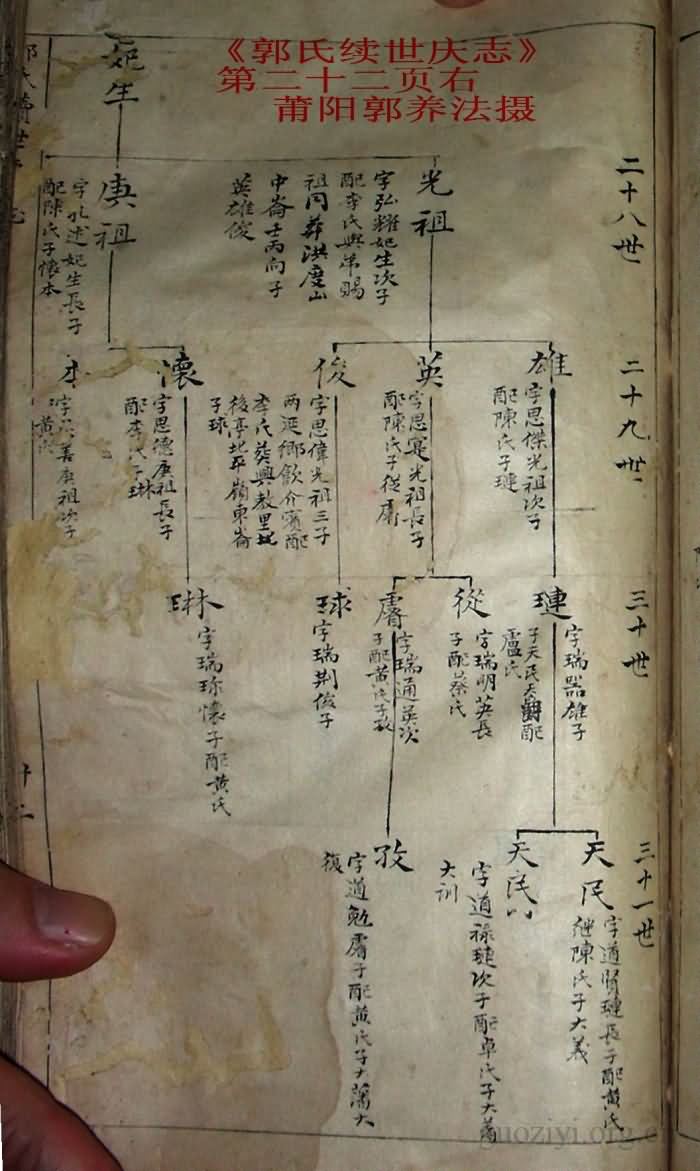 《郭氏续世庆志》
第二十二页右
莆阳郭养法摄
二十八世
光祖
字弘耀妃生次子
配李氏與弟賜
祖同葬洪度山
中崙壬丙向子
英雄俊
妃生
庚祖
述妃生長子
配陳氏子懷本
二十九世
雄
字思傑光祖次子
配陳氏子璉
英
字思寔光祖長子
配陳氏子從膺
俊
字思偉光祖三子
两延鄉飲介賓配
李氏葬興教里
後亭北平嶺東崙
子球
懷
字思德庚祖長子
配李氏子琳
本
善庚祖次子
三十世
璉
字瑞器雄子
子天民天爵配
盧氏
從
字瑞明英長
子配蔡氏
膺
字瑞通英次
子配黄氏子孜
球
字瑞荆俊子
琳
字瑞珎懷子配黄氏
三十一世
天民
字道賢璉長子配黄氏
继陳氏子大義
天民
字道禄璉次子配卓氏子大
大訓
孜
字道勉膺子配黄氏子大藩大
復
guoziyi.org.c